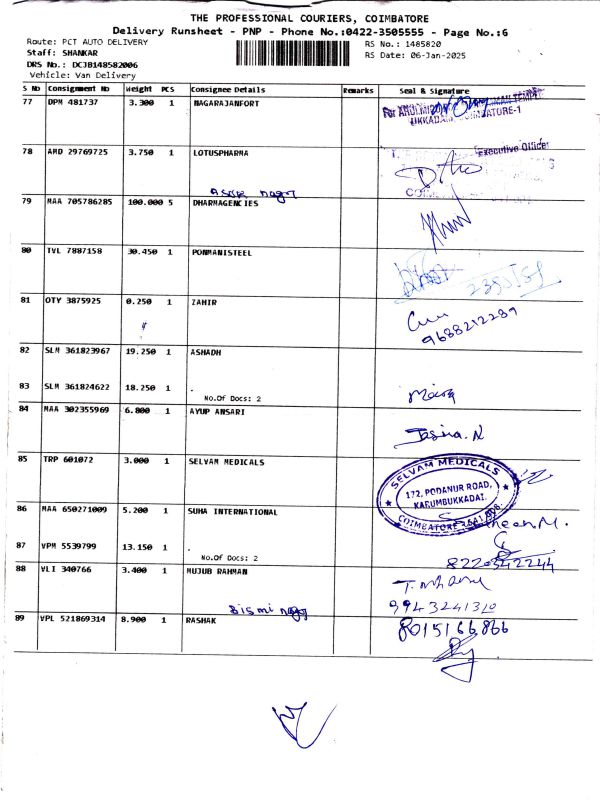 THE PROFESSIONAL COURIERS, COIMBATORE
Delivery Runsheet - PNP - Phone No.:0422-3505555 - Page No.:6
Route: PCT AUTO DELIVERY
RS No.: 1485820
Staff: SHANKAR
RS Date: 06-Jan-2025
DRS No.: DCJB148582006
Vehicle: Van Delivery
S No Consignment No Weight PCS Consignee Details Remarks Seal & Signature
77 DPM 481737 3.300 1 NAGARAJANFORT
UKKADAM, COIMBATORE-1
78 AMD 29769725 3.750 1 LOTUSPHARMA
Executive Officer
79 MAA 705786285 100.000 5 DHARMAGENCIES
80 TVL 7887158 30.450 1 PONMANISTEEL
81 OTY 3875925 0.250 1 ZAHIR
9688212289
82 SLM 361823967 19.250 1 ASHADH
83 SLM 361824622 18.250 1 .
No.Of Docs: 2
84 MAA 302355969 6.800 1 AYUP ANSARI
Jasina.N
85 TRP 601072 3.000 1 SELVAM MEDICALS
SELVAM MEDICALS
172, PODANUR ROAD,
KARUMBUKKADAI.
COIMBATORE-641 008.
86 MAA 650271009 5.200 1 SUHA INTERNATIONAL
87 VPM 5539799 13.150 1 .
No.Of Docs: 2
8220342244
88 VLI 340766 3.400 1 MUJUB RAHMAN
Bismi nagar
9943241310
89 VPL 521869314 8.900 1 RASHAK
8015166866